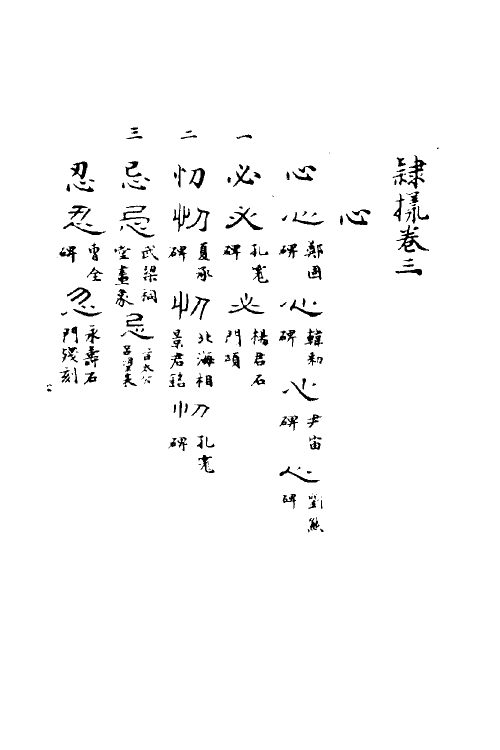 隸㨾卷三
心
心 心 鄭固碑 心 韓勑碑 心 尹宙碑 心 劉熊碑
一
必 必 孔宙碑 必 楊君石門頌
二
忉 忉 夏承碑 忉 北海相景君銘 忉 孔宙碑
三
忌 忌 武梁祠堂畫象 忌 太公呂望表
忍 忍 曹全碑 忍 永壽石門殘刻